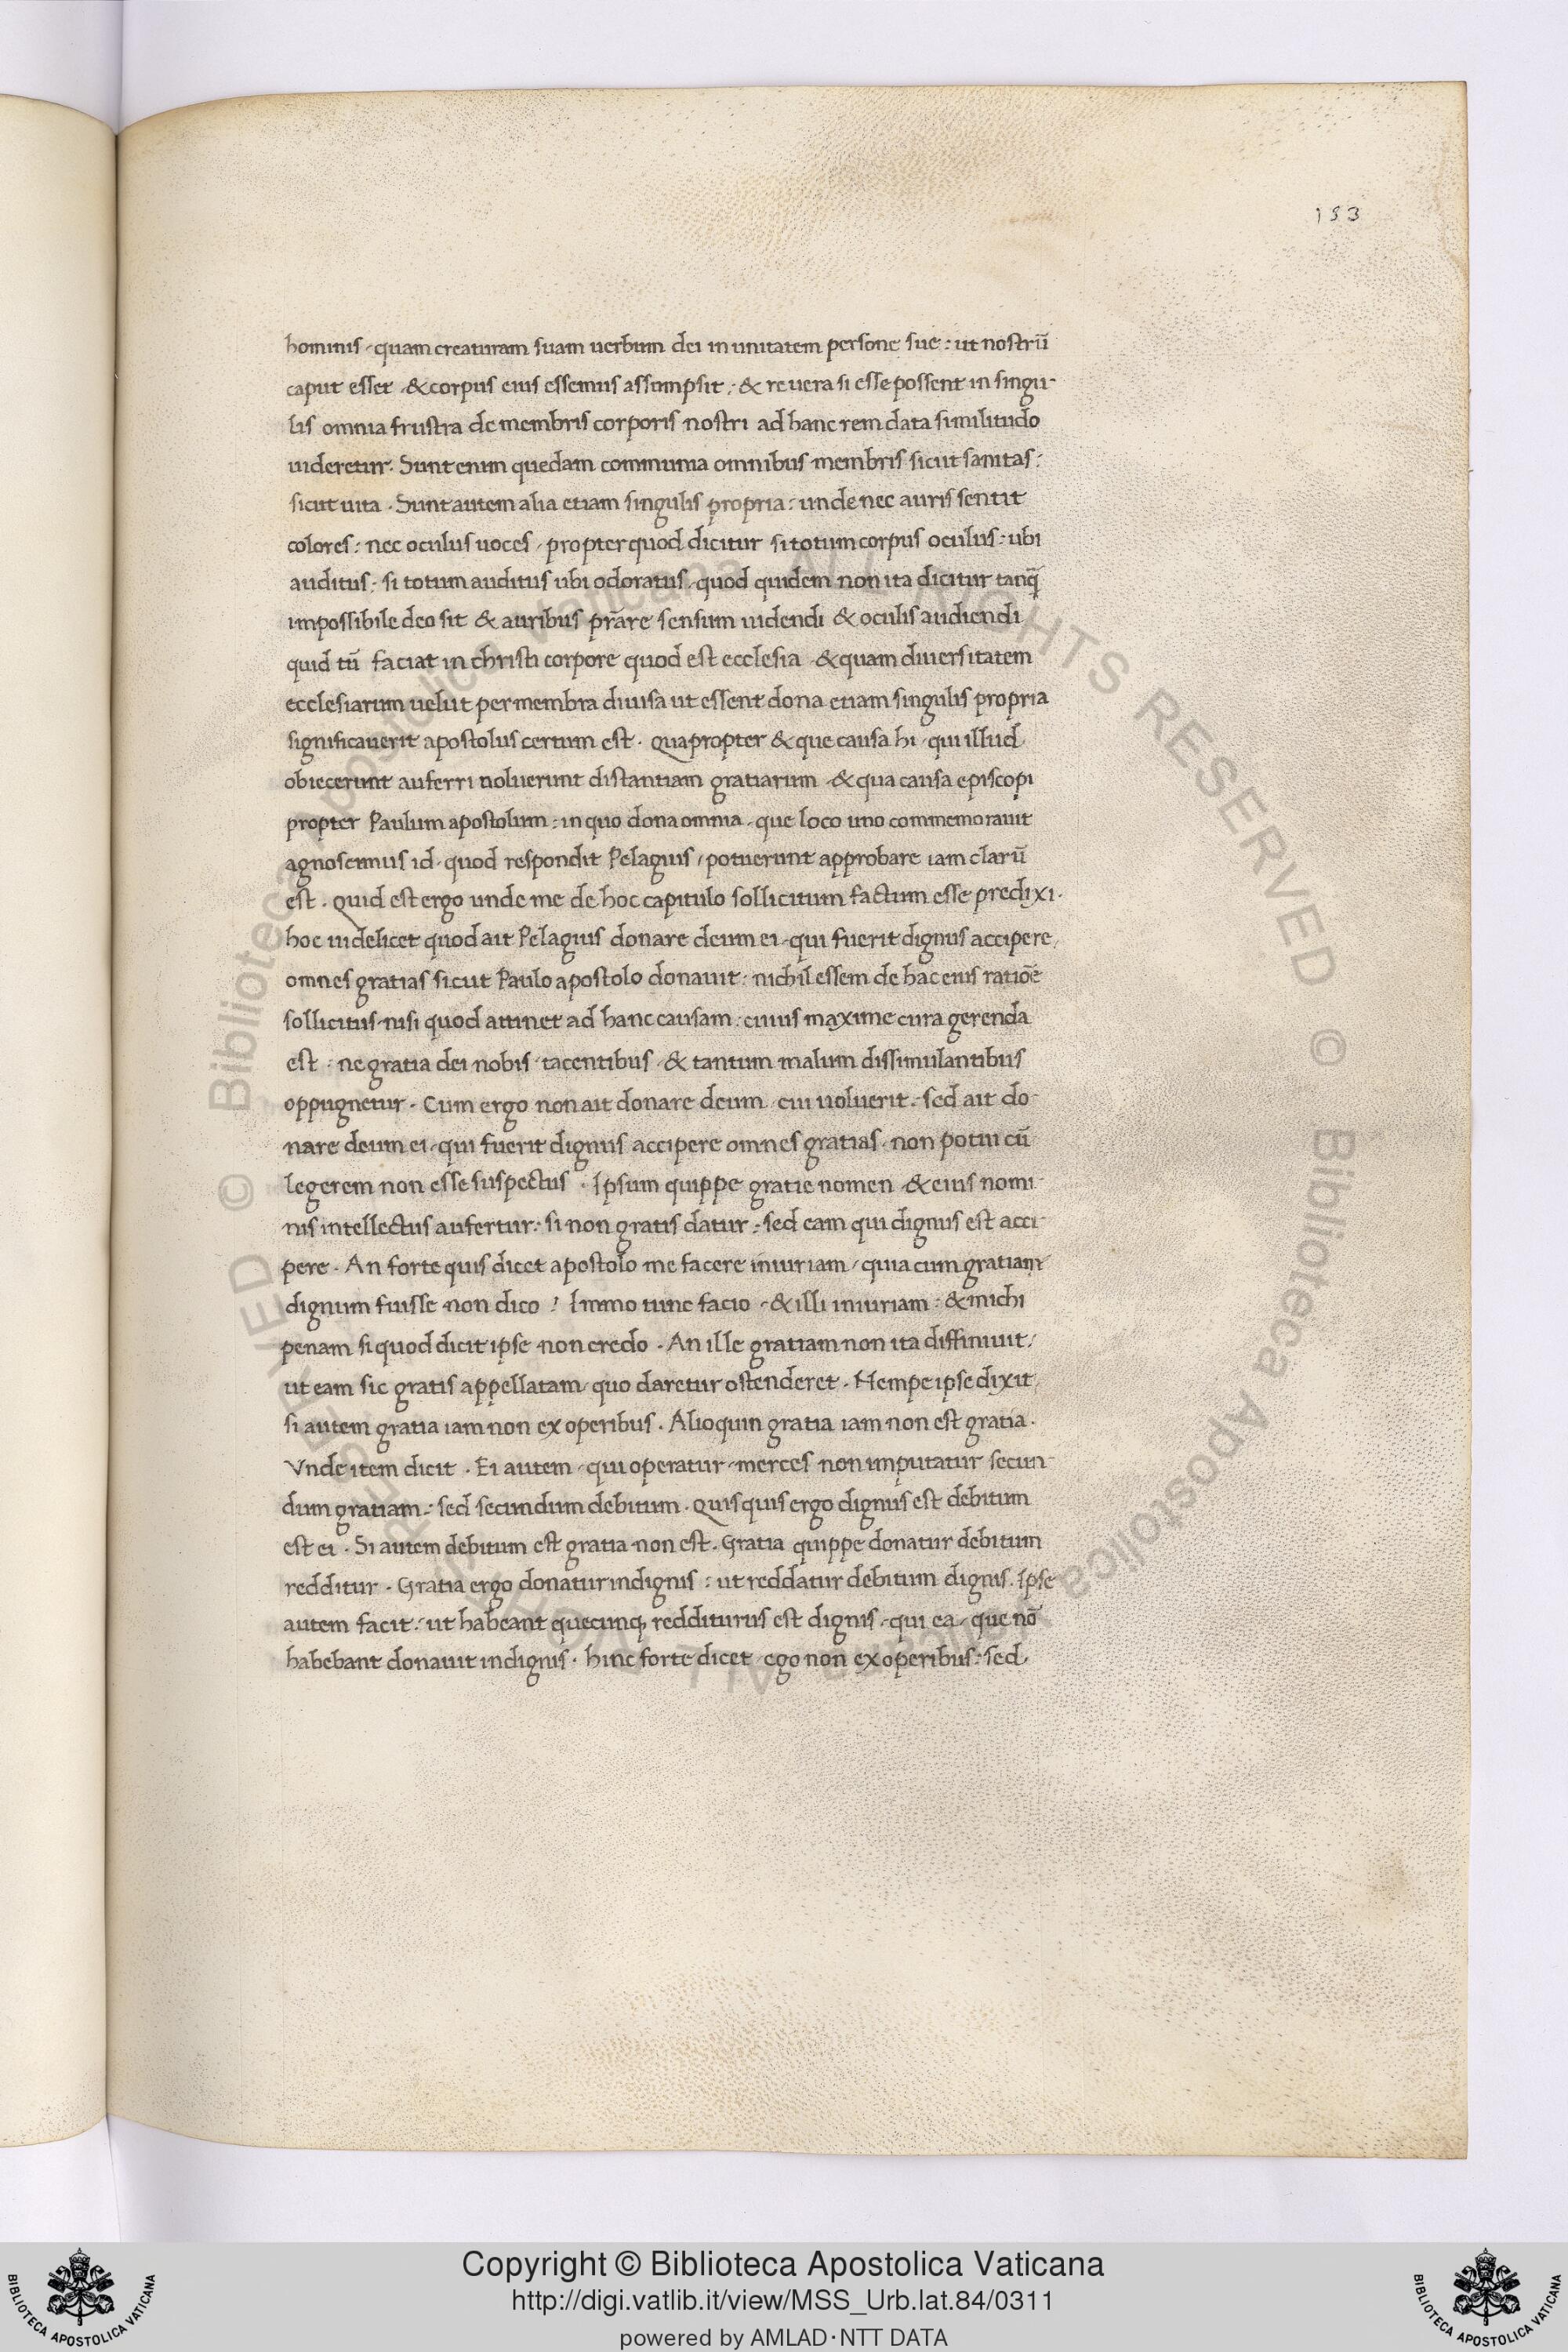 153
hominis · quam creaturam suam uerbum dei in unitatem persone sue : ut nostrū
caput esset · & corpus eius essemus assumpsit ; & re uera si esse possent in singu-
lis omnia frustra de membris corporis nostri ad hanc rem data similitudo
uideretur. Sunt enim quedam communia omnibus membris sicut sanitas :
sicut uita . Sunt autem alia etiam singulis propria : unde nec auris sentit
colores : nec oculus uoces , propter quod dicitur si totum corpus oculus : ubi
auditus ; si totum auditus ubi odoratus , quod quidem non ita dicitur tanq̃
impossibile deo sit & auribus p̃rare sensum uidendi & oculis audiendi
quid tū faciat in christi corpore quod est ecclesia · & quam diuersitatem
ecclesiarum uelut per membra diuisa ut essent dona etiam singulis propria
significauerit apostolus certum est . Quapropter & que causa hi · qui illud
obiecerunt auferri noluerunt distantiam gratiarum · & qua causa episcopi
propter Paulum apostolum : in quo dona omnia · que loco uno commemorauit
agnoscimus id · quod respondit Pelagius , potuerunt approbare iam clarū
est . Quid est ergo unde me de hoc capitulo sollicitum factum esse predixi .
hoc uidelicet quod ait Pelagius donare deum ei · qui fuerit dignus accipere
omnes gratias sicut Paulo apostolo donauit : nichil essem de hac eius ratiōe
sollicitus · nisi quod attinet ad hanc causam : cuius maxime cura gerenda
est : ne gratia dei nobis · tacentibus · & tantum malum dissimulantibus
oppugnetur . Cum ergo non ait donare deum · cui uoluerit . sed ait do-
nare deum ei · qui fuerit dignus accipere omnes gratias · non potui cū
legerem non esse suspectus . Ipsum quippe gratie nomen · & eius nomi-
nis intellectus aufertur : si non gratis datur : sed eam qui dignus est acci-
pere . An forte quis dicet apostolo me facere iniuriam , quia cum gratiam
dignum fuisse non dico ? Immo tunc facio · & illi iniuriam : & michi
penam si quod dicit ipse non credo . An ille gratiam non ita diffiniuit ,
ut eam sic gratis appellatam · quo daretur ostenderet . Nempe ipse dixit
si autem gratia iam non ex operibus . Alioquin gratia iam non est gratia .
Vnde item dicit . Ei autem · qui operatur · merces non imputatur secun-
dum gratiam : sed secundum debitum . Quisquis ergo dignus est debitum
est ei . Si autem debitum est gratia non est . Gratia quippe donatur debitum
redditur . Gratia ergo donatur indignis : ut reddatur debitum dignis . Ipse
autem facit : ut habeant quecunq; redditurus est dignis · qui ea · que nō
habebant donauit indignis . hinc forte dicet · ego non ex operibus : sed
© Biblioteca Apostolica Vaticana ALL RIGHTS RESERVED © Biblioteca Apostolica Vaticana ALL RIGHTS RESERVED
Copyright © Biblioteca Apostolica Vaticana
http://digi.vatlib.it/view/MSS_Urb.lat.84/0311
powered by AMLAD·NTT DATA
BIBLIOTECA APOSTOLICA VATICANA
BIBLIOTECA APOSTOLICA VATICANA